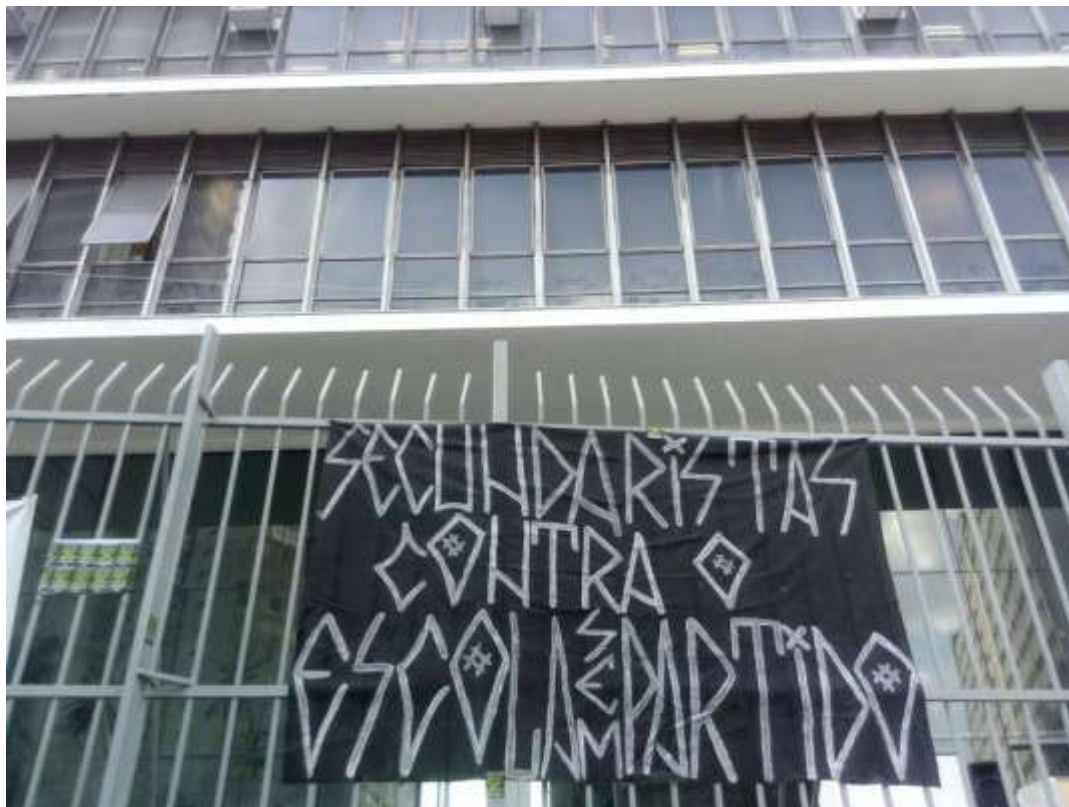 SECUNDARiSTAS
CONTRA O
ESCOLA SEM PARTiDO